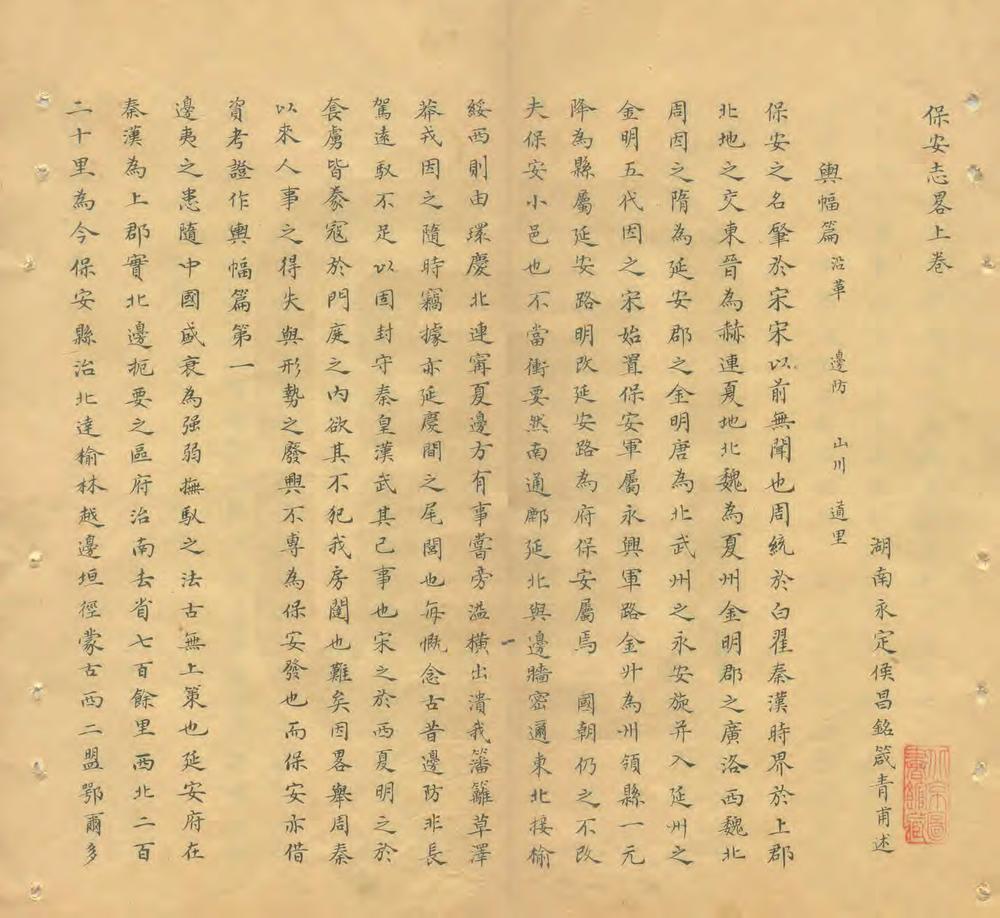 保安志畧上卷
湖南永定侯昌銘箴青甫述
輿幅篇 沿革 邊防 山川 道里
保安之名肇於宋宋以前無聞也周統於白翟秦漢時界於上郡
北地之交東晉為赫連夏地北魏為夏州金明郡之廣洛西魏北
周因之隋為延安郡之金明唐為北武州之永安旋并入延州之
金明五代因之宋始置保安軍屬永興軍路金升為州領縣一元
降為縣屬延安路明改延安路為府保安屬焉 國朝仍之不改
夫保安小邑也不當衝要然南通鄜延北與邊牆密邇東北接榆
綏西則由環慶北連甯夏邊方有事嘗旁溢橫出潰我藩籬草澤
莽戎因之隨時竊據亦延慶間之尾閭也每慨念古昔邊防非長
駕遠馭不足以固封守秦皇漢武其已事也宋之於西夏明之於
套虜皆豢寇於門庭之內欲其不犯我房闥也難矣因畧舉周秦
以來人事之得失與形勢之廢興不專為保安發也而保安亦借
資考證作輿幅篇第一
邊夷之患隨中國盛衰為强弱撫馭之法古無上策也延安府在
秦漢為上郡實北邊扼要之區府治南去省七百餘里西北二百
二十里為今保安縣治北達榆林越邊垣徑蒙古西二盟鄂爾多